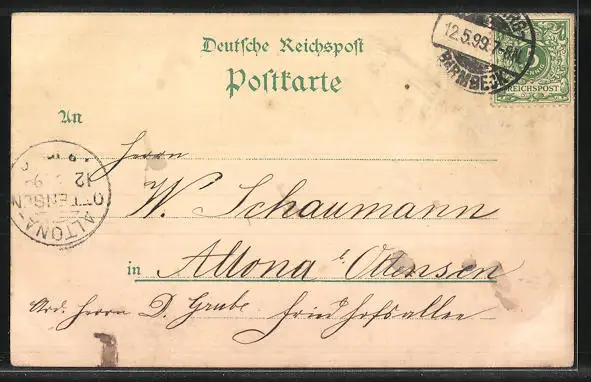 Deutsche Reichspost
Postkarte
12.5.99. 7-8N.
BARMBECK
REICHSPOST
An
Herrn
W. Schaumann
in Altona Ottensen
Adr. Herrn D. Grube Friedhofsallee
ALTONA-
OTTENSEN
12